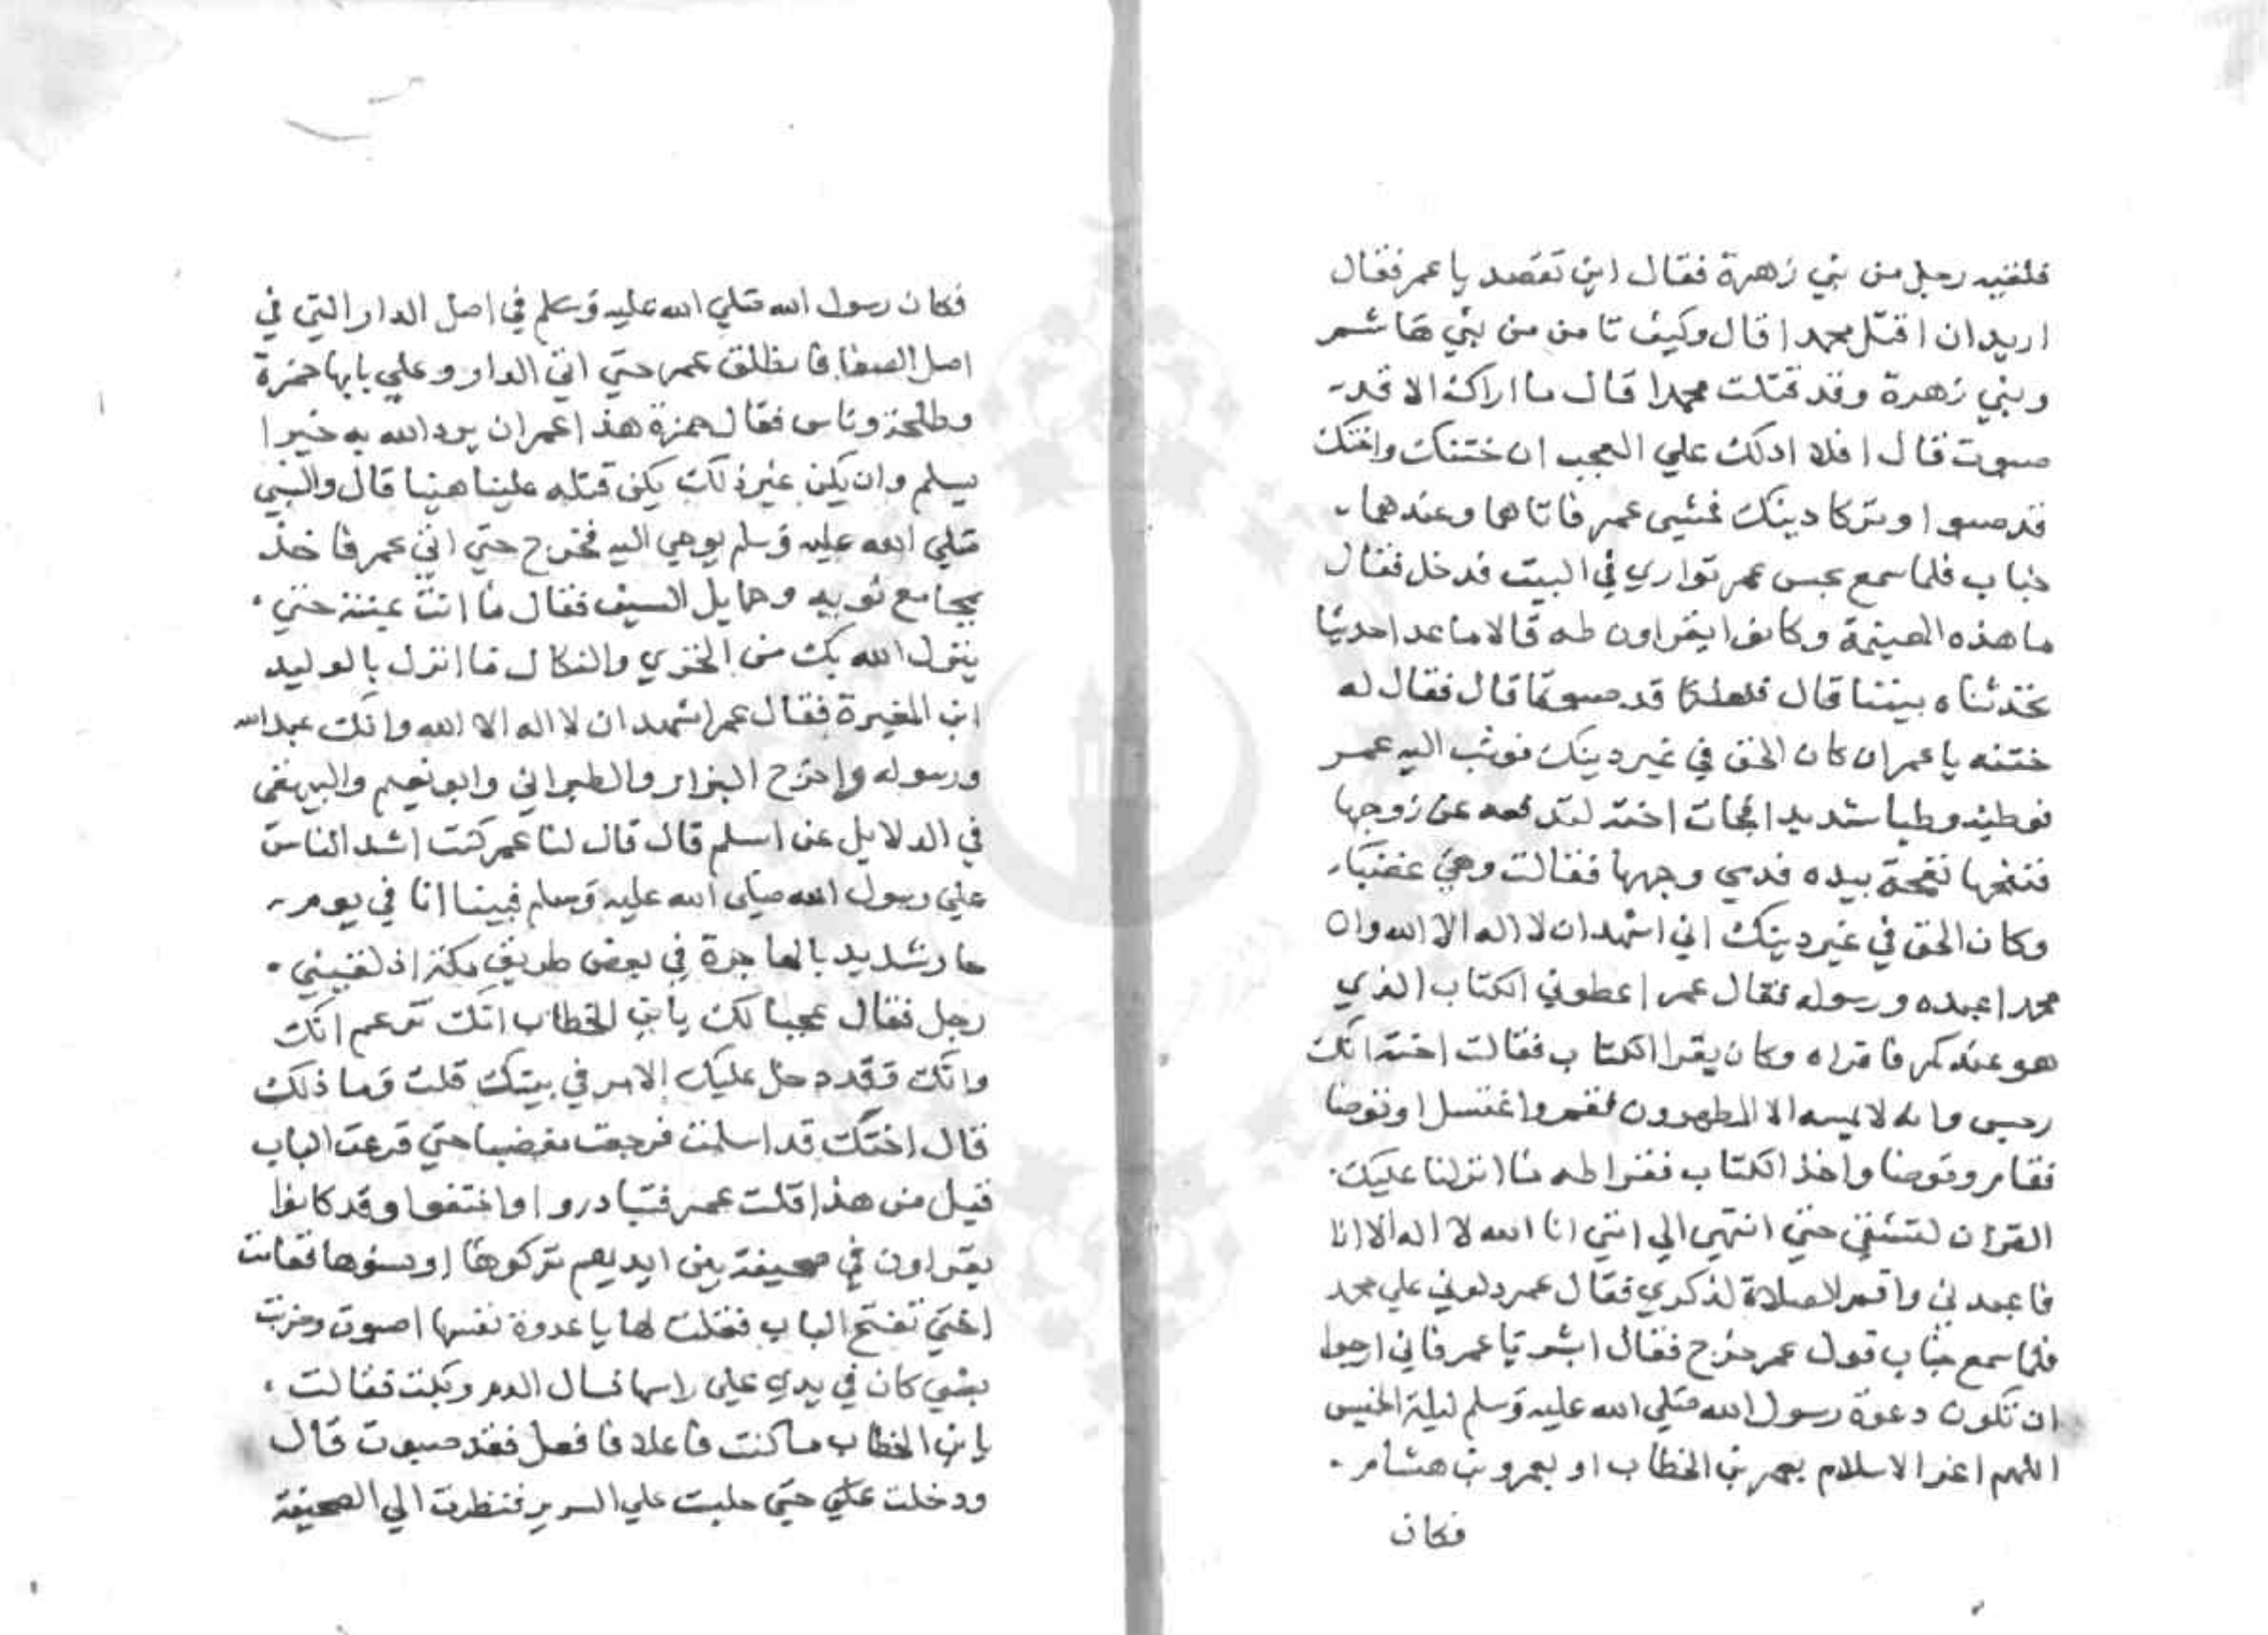 فلقيه رجل من بني زهرة فقال اين تقصد يا عمر فقال
اريد ان اقتل محمدا قال وكيف تامن من بني هاشم
وبني زهرة وقد قتلت محمدا قال ما اراك الا قد
صبوت قال افلا ادلك علي العجب ان ختنك واختك
قد صبوا وتركا دينك فمشي عمر فاتاهما وعندهما
خباب فلما سمع بحس عمر تواري في البيت فدخل فقال
ما هذه الهينمة وكانوا يقراون طه قالا ما عدا حديثا
تحدثناه بيننا قال فلعلكما قد صبوتما قال فقال له
ختنه يا عمر ان كان الحق في غير دينك فوثب اليه عمر
فوطيه وطيا شديدا فجات اخته لتدفعه عن زوجها
فنفحها نفحة بيده فدمي وجهها فقالت وهي غضبا
وكان الحق في غير دينك اني اشهد ان لا اله الا الله وان
محمدا عبده ورسوله فقال عمر اعطوني الكتاب الذي
هو عندكم فاقراه وكان يقرا الكتاب فقالت اخته انك
رجس وانه لا يمسه الا المطهرون فقم واغتسل او توضا
فقام وتوضا واخذ الكتاب فقرا طه ما انزلنا عليك
القران لتشقي حتي انتهي الي انني انا الله لا اله الا انا
فاعبدني واقم الصلاة لذكري فقال عمر دلوني علي محمد
فلما سمع خباب قول عمر خرج فقال ابشر يا عمر فاني ارجوا
ان تكون دعوة رسول الله صلي الله عليه وسلم ليلة الخميس
اللهم اعز الاسلام بعمر بن الخطاب او بعمرو بن هشام
فكان
فكان رسول الله صلي الله عليه وسلم في اصل الدار التي في
اصل الصفا فانطلق عمر حتي اتي الدار وعلي بابها حمزة
وطلحة وناس فقال حمزة هذا عمر ان يرد الله به خيرا
يسلم وان يكن غير ذلك يكن قتله علينا هينا قال والنبي
صلي الله عليه وسلم يوحي اليه فخرج حتي اتي عمر فاخذ
بمجامع ثوبه وحمايل السيف فقال ما انت عمر حتي
ينزل الله بك من الخزي والنكال ما انزل بالوليد
ابن المغيرة فقال عمر اشهد ان لا اله الا الله وانك عبد الله
ورسوله واخرج البزار والطبراني وابو نعيم والبيهقي
في الدلايل عن اسلم قال قال لنا عمر كنت اشد الناس
علي رسول الله صلي الله عليه وسلم فبينا انا في يوم
حار شديد بالهاجرة في بعض طريق مكة اذ لقيني
رجل فقال عجبا لك يا بن الخطاب انك تزعم انك
وانك وقد دخل عليك الامر في بيتك قلت وما ذلك
قال اختك قد اسلمت فرجعت مغضبا حتي قرعت الباب
فقيل من هذا قلت عمر فتبادروا واختفوا وقد كانوا
يقراون في صحيفة بين ايديهم تركوها او نسوها فقامت
اختي تفتح الباب فقلت لها يا عدوة نفسها اصبوت وضربت
بشي كان في يدي علي راسها فسال الدم وبكت فقالت
يا بن الخطاب ما كنت فاعلا فافعل فقد صبوت قال
ودخلت حتي جلست علي السرير فنظرت الي الصحيفة